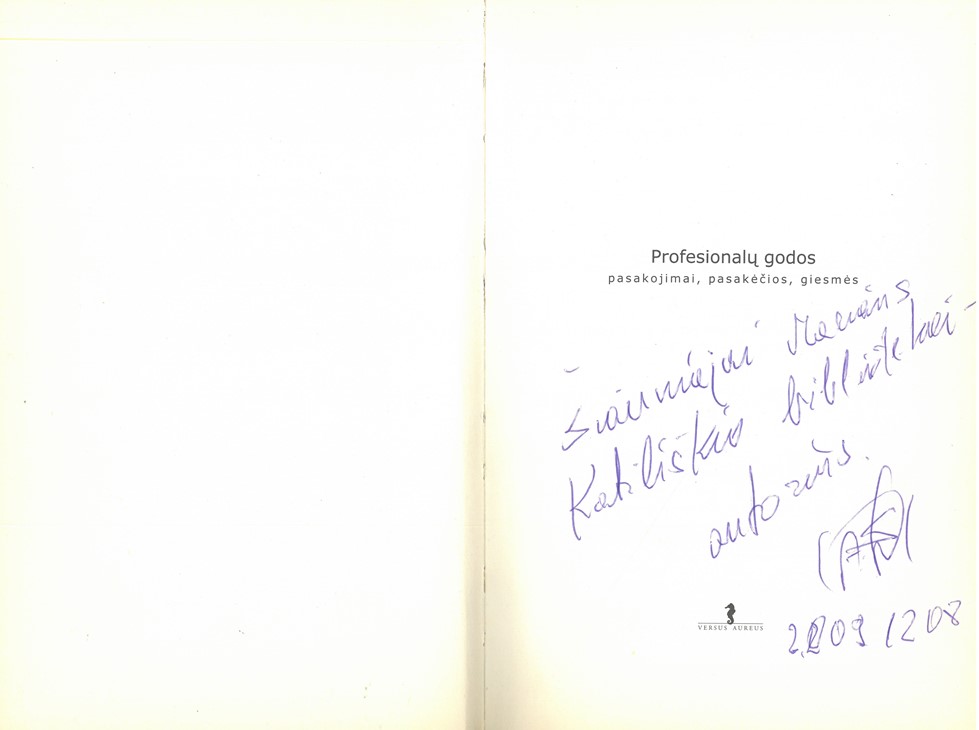 Profesionalų godos
pasakojimai, pasakėčios, giesmės
Šauniajai Mariaus
Katiliškio bibliotekai –
autorius.
VERSUS AUREUS
2009 1208